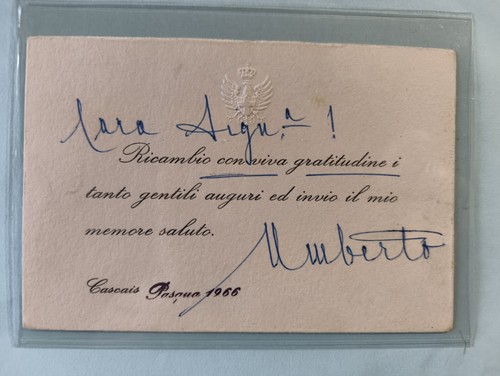 Cara Sign.a !
Ricambio con viva gratitudine i
tanto gentili auguri ed invio il mio
memore saluto.
Umberto
Cascais Pasqua 1966